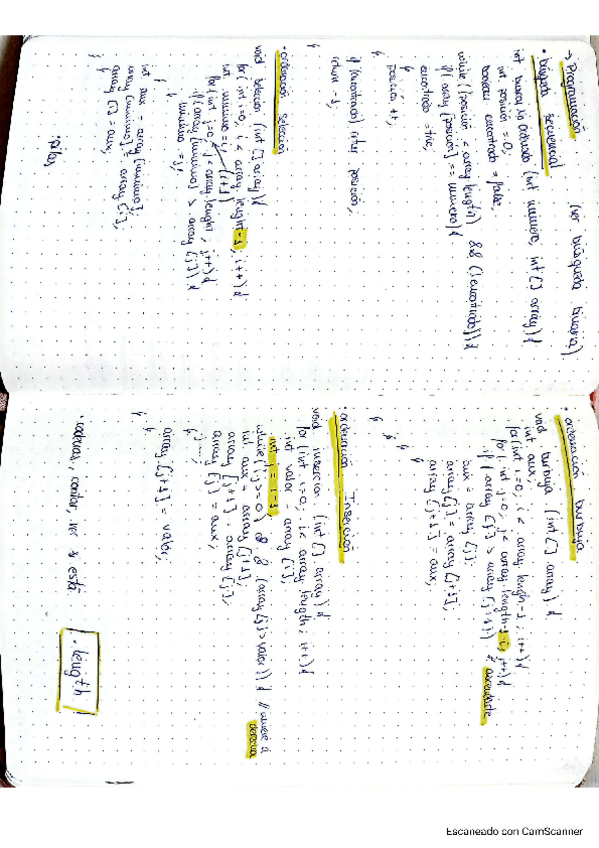 → Programación (ver búsqueda binaria)
• búsqueda secuencial
int busqNoOrdenado (int numero, int[] array){
int posicion = 0;
boolean encontrado = false;
while ((posicion < array.length) && (!encontrado)){
if (array[posicion] == numero){
encontrado = true;
}
posicion ++;
}
if (encontrado) return posicion;
return -1;
}
• ordenación selección
void seleccion (int[] array){
for (int i=0; i < array.length-1; i++){
int minimo = i; (i+1)
for (int j=0; j < array.length; j++){
if (array[minimo] > array[j]){
minimo = j;
}
}
int aux = array[minimo];
array[minimo] = array[i];
array[i] = aux;
}
}
• ordenación burbuja
void burbuja (int[] array){
int aux;
for (int i=0; i < array.length-1; i++){
for (int j=0; j < array.length-1-i; j++){
if (array[j] > array[j+1]) { ascendente
aux = array[j];
array[j] = array[j+1];
array[j+1] = aux;
}
}
}
}
• ordenación Inserción
void insercion (int[] array){
for (int i=0; i < array.length; i++){
int valor = array[i];
int j = i-1;
while ((j>=0) && (array[j]>valor)){ // mueve a derecha
int aux = array[j+1];
array[j+1] = array[j];
array[j] = aux;
j--;
}
array[j+1] = valor;
}
}
• cadenas, contar, ver si está
.length
Escaneado con CamScanner